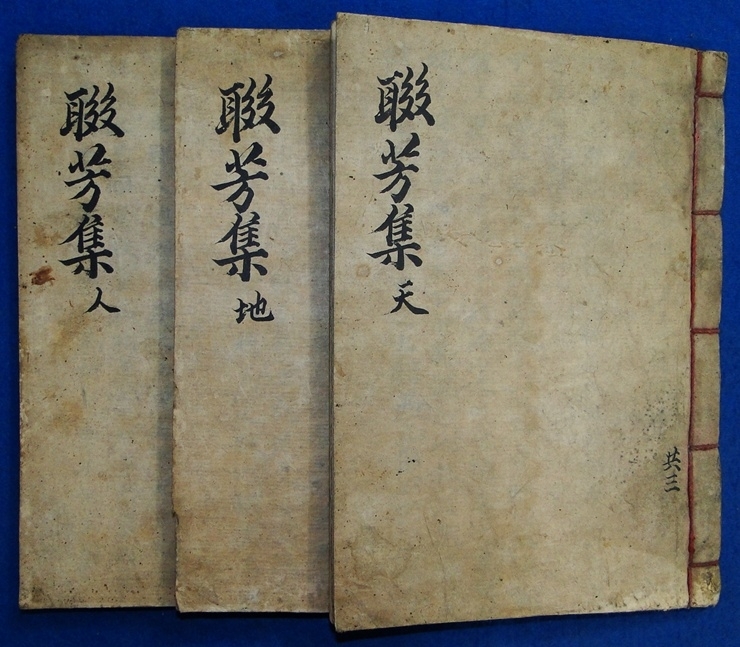 聯芳集 天
共三
聯芳集 地
聯芳集 人